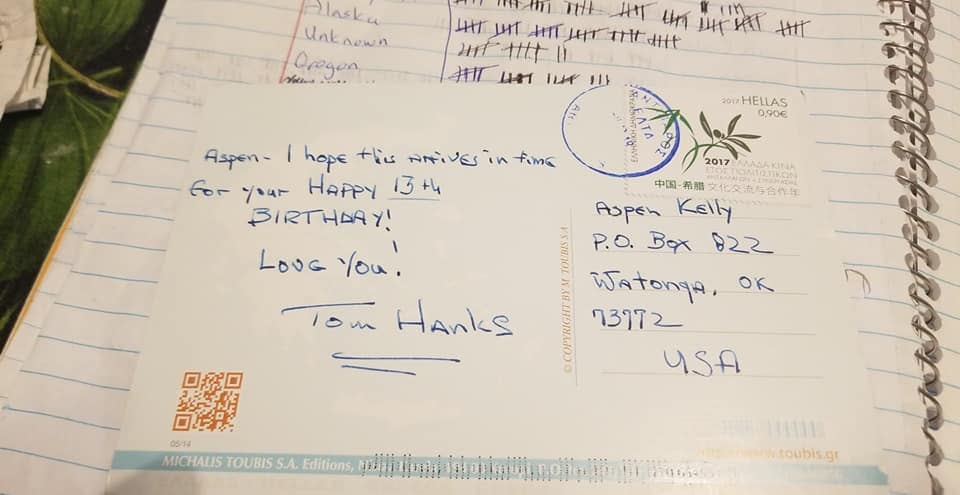 Alaska
Unknown
Oregon
2017 HELLAS
0,90€
ΕΛΛΗΝΙΚΗ ΔΗΜΟΚΡΑΤΙΑ
ΕΛΤΑ
2017 ΕΛΛΑΔΑ-ΚΙΝΑ
ΕΤΟΣ ΠΟΛΙΤΙΣΤΙΚΩΝ
中国-希腊 文化交流与合作年
Aspen - I hope this arrives in time
for your HAPPY 13th
BIRTHDAY!
LOVE YOU!
Tom HANKS
Aspen Kelly
P.O. Box 822
Watonga, OK
73772
USA
© COPYRIGHT BY M. TOUBIS S.A.
05/14
MICHALIS TOUBIS S.A. Editions,
www.toubis.gr